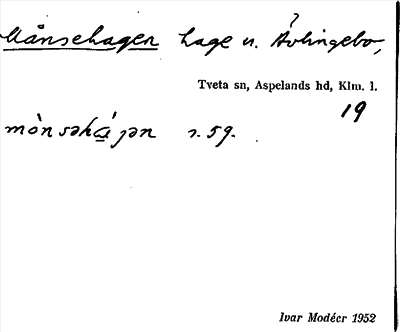 Månsehagen hage u. Åvlingebo,
Tveta sn, Aspelands hd, Klm. l.
19
mo̊̀nsəhá̲jən s. 59.
Ivar Modéer 1952